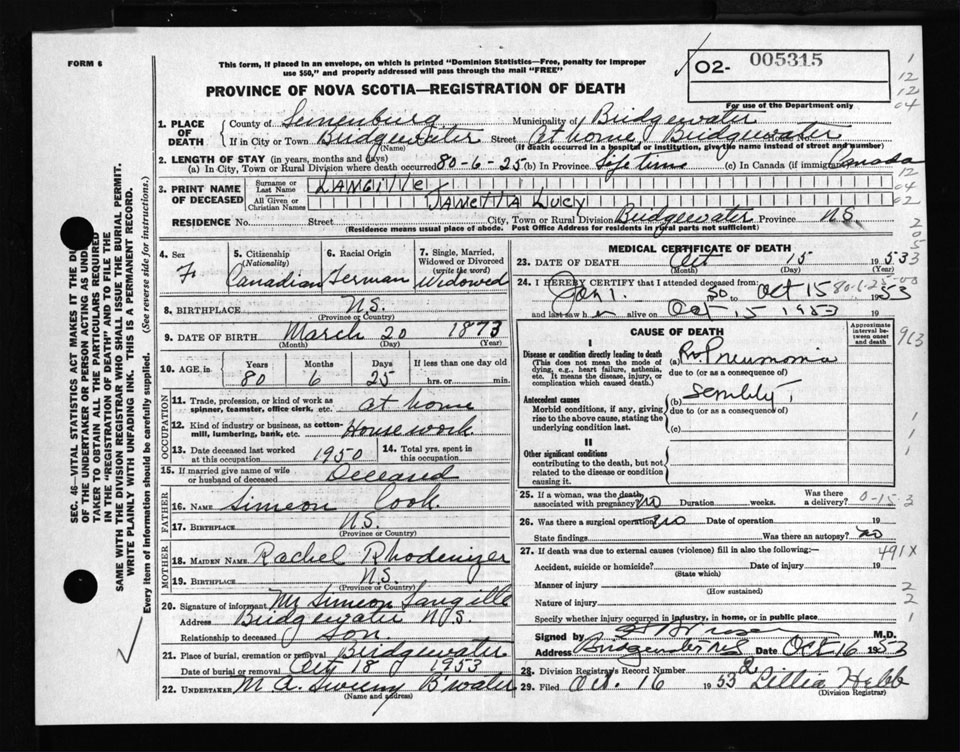 FORM 6
This form, if placed in an envelope, on which is printed "Dominion Statistics—Free, penalty for improper
use $50," and properly addressed will pass through the mail "FREE"
02- 005315
For use of the Department only
PROVINCE OF NOVA SCOTIA—REGISTRATION OF DEATH
1. PLACE OF DEATH
County of Lunenburg Municipality of Bridgewater
If in City or Town Bridgewater Street At home, Bridgewater House No.
(Name) (If death occurred in a hospital or institution, give the name instead of street and number)
2. LENGTH OF STAY (in years, months and days)
(a) In City, Town or Rural Division where death occurred 80-6-25 (b) In Province Life time (c) In Canada (if immigrant) Canada
3. PRINT NAME OF DECEASED
Surname or Last Name LANGILLE
All Given or Christian Names JANETTA LUCY
RESIDENCE No. Street City, Town or Rural Division Bridgewater Province N.S.
(Residence means usual place of abode. Post Office Address for residents in rural parts not sufficient)
4. Sex F
5. Citizenship (Nationality) Canadian
6. Racial Origin German
7. Single, Married, Widowed or Divorced (write the word) Widowed
8. BIRTHPLACE N.S.
(Province or Country)
9. DATE OF BIRTH March 20 1873
(Month) (Day) (Year)
10. AGE in Years Months Days If less than one day
80 6 25 hrs. or min.
OCCUPATION
11. Trade, profession, or kind of work as spinner, teamster, office clerk, etc. at home
12. Kind of industry or business, as cotton-mill, lumbering, bank, etc. Housework
13. Date deceased last worked at this occupation 1950
14. Total yrs. spent in this occupation
15. If married give name of wife or husband of deceased Deceased
FATHER
16. Name Simeon Cook
17. Birthplace N.S.
(Province or Country)
MOTHER
18. MAIDEN NAME Rachel Rhodenizer
19. BIRTHPLACE N.S.
(Province or Country)
20. Signature of informant Mr Simeon Langille
Address Bridgewater N.S.
Relationship to deceased son.
21. Place of burial, cremation or removal Bridgewater
Date of burial or removal Oct 18 1953
22. UNDERTAKER M. A. B'water
(Name and address)
MEDICAL CERTIFICATE OF DEATH
23. DATE OF DEATH Oct 15 1953
(Month) (Day) (Year)
24. I HEREBY CERTIFY that I attended deceased from
Jan 1. 50 to Oct 15 1953
and last saw her alive on Oct 15 1953
CAUSE OF DEATH
Approximate interval between onset and death
I
Disease or condition directly leading to death
(This does not mean the mode of dying, e.g., heart failure, asthenia, etc. It means the disease, injury, or complication which caused death.)
(a) Br. Pneumonia
due to (or as a consequence of)
Antecedent causes
Morbid conditions, if any, giving rise to the above cause, stating the underlying condition last.
(b)
due to (or as a consequence of)
(c)
II
Other significant conditions
contributing to the death, but not related to the disease or condition causing it.
25. If a woman, was the death associated with pregnancy no Duration weeks. Was there a delivery?
26. Was there a surgical operation no Date of operation 19
State findings Was there an autopsy? no
27. If death was due to external causes (violence) fill in also the following:—
Accident, suicide or homicide? Date of injury 19
(State which)
Manner of injury
(How sustained)
Nature of injury
Specify whether injury occurred in industry, in home, or in public place
Signed by M.D.
Address Bridgewater N.S. Date Oct 16 1953
28. Division Registrar's Record Number 2
29. Filed Oct. 16 1953 Lillia Hebb
(Division Registrar)
SEC. 46—VITAL STATISTICS ACT MAKES IT THE DU
OF THE UNDERTAKER OR PERSON ACTING AS UND
TAKER TO OBTAIN ALL THE PARTICULARS REQUIRED
IN THE "REGISTRATION OF DEATH" AND TO FILE THE
SAME WITH THE DIVISION REGISTRAR WHO SHALL ISSUE THE BURIAL PERMIT.
WRITE PLAINLY WITH UNFADING INK. THIS IS A PERMANENT RECORD.
Every item of information should be carefully supplied. (See reverse side for instructions.)
1
12
12
04
12
04
02
2
05
3
80-6-25-00
913
1
1
0-15 3
491X
2
2
1